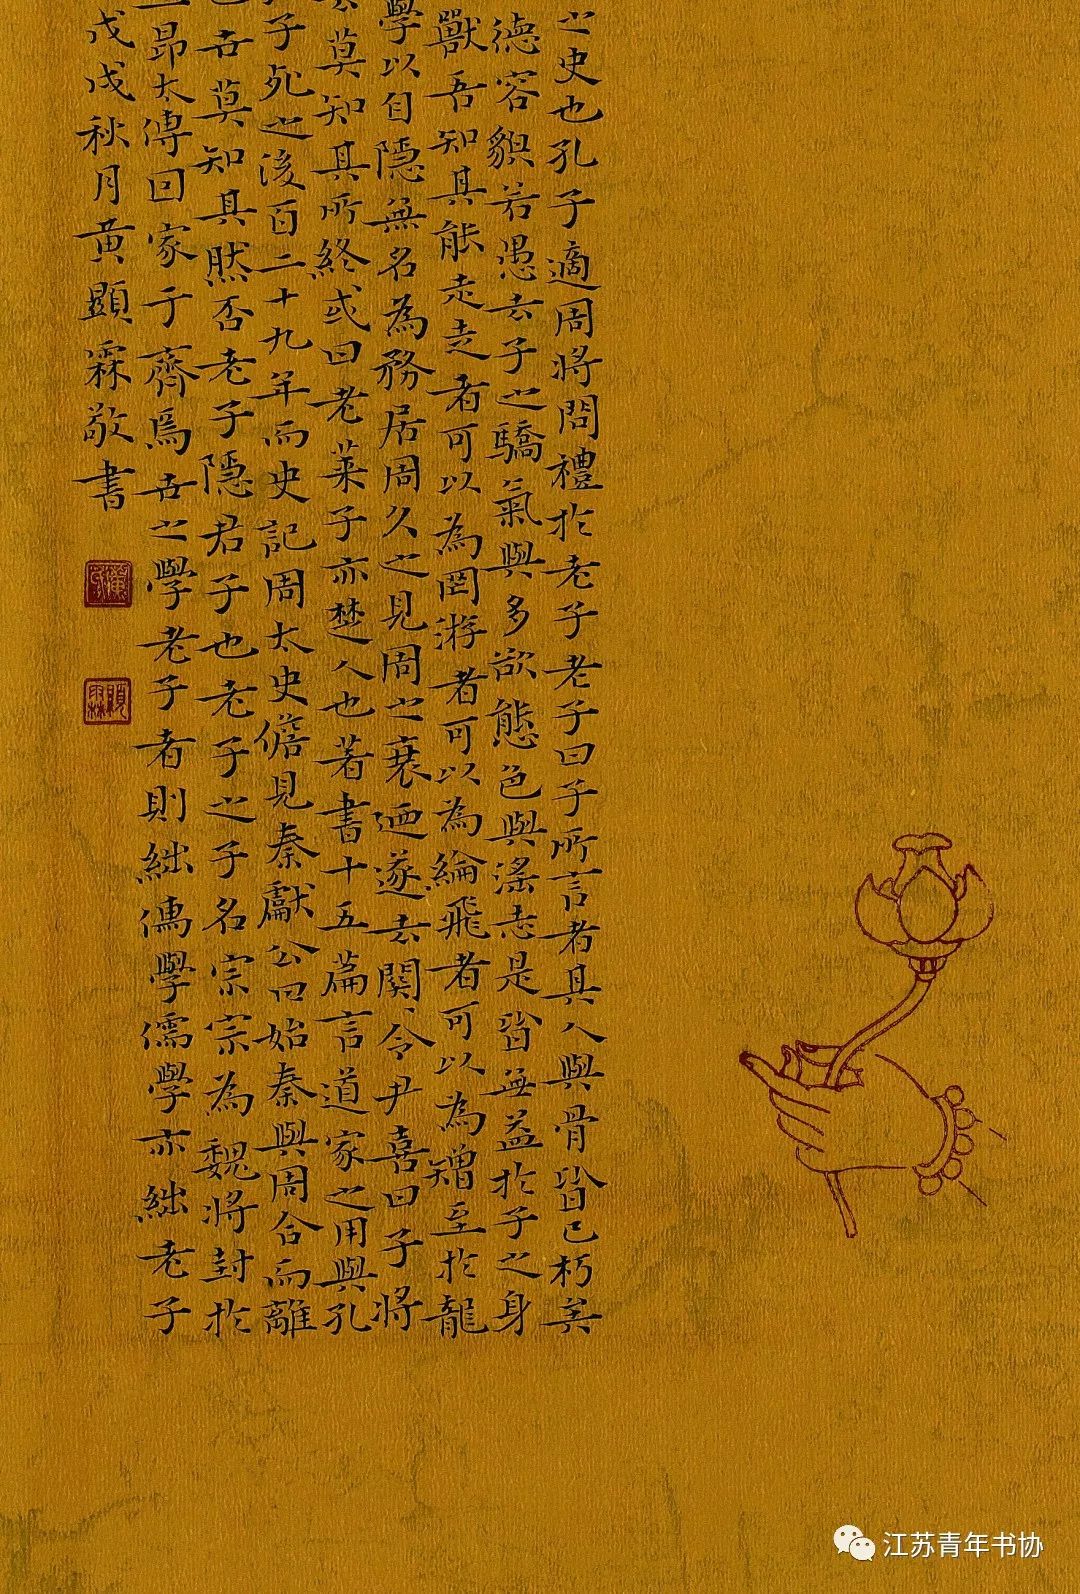 之史也孔子適周將問禮於老子老子曰子所言者其人與骨皆已朽矣
德容貌若愚去子之驕氣與多欲態色與淫志是皆無益於子之身
獸吾知其能走走者可以為罔游者可以為綸飛者可以為矰至於龍
學以自隱無名為務居周久之見周之衰迺遂去關、令尹喜曰子將
莫知其所終或曰老萊子亦楚人也著書十五篇言道家之用與孔
子死之後百二十九年而史記周太史儋見秦獻公曰始秦與周合而離
世莫知其然否老子隱君子也老子之子名宗宗為魏將封於
昂太傅回家于齊焉世之學老子者則絀儒學儒學亦絀老子
戊戌秋月黃顯霖敬書
顯霖
江苏青年书协